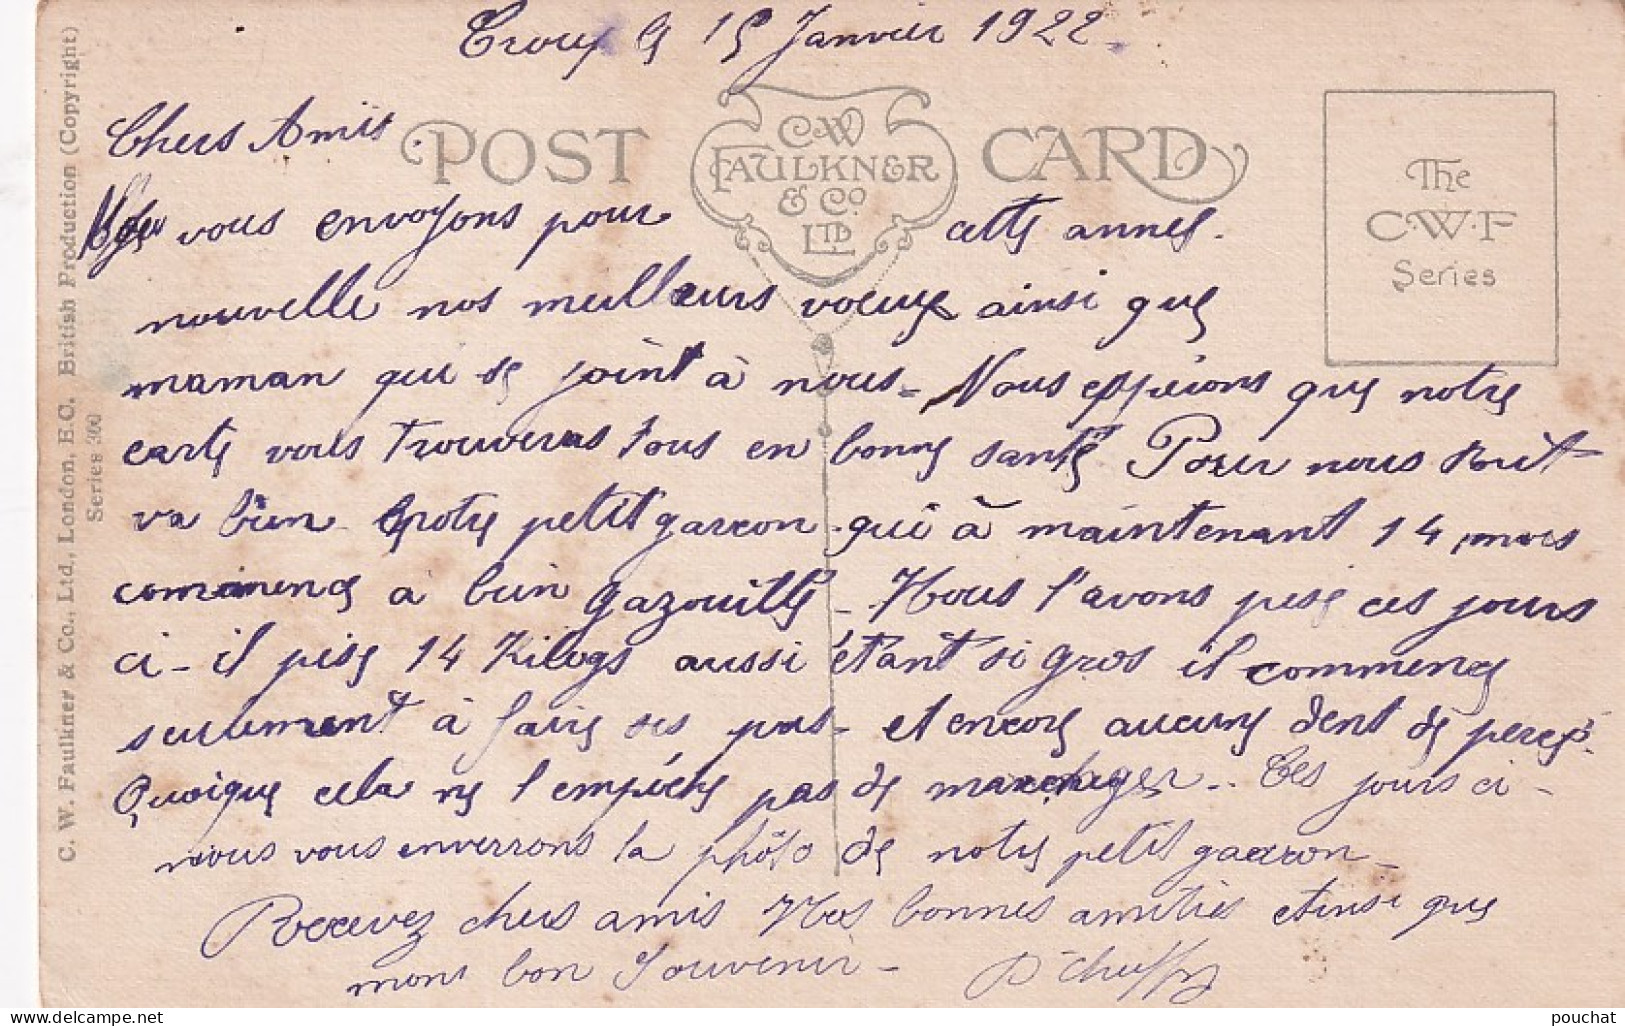 le 15 Janvier 1922
POST CARD
C.W. FAULKNER & Co. LTD
The
C.W.F
Series
C. W. Faulkner & Co., Ltd., London, E.C. British Production (Copyright)
Series 300
Chers Amis.
vous envoyons pour cette annee.
nouvelle nos meilleurs voeux ainsi que
maman qui se joint à nous - Nous espérons que notre
carte vous trouveras tous en bonne santé Pour nous tout
va bien notre petit garcon qui à maintenant 14 mois
commence à bien gazouille - Nous l'avons pese ces jours
ci - il pese 14 Kilogs aussi étant si gros il commence
seulement à faire ses pas - et encore aucune dent de percé.
Quoique cela ne l'empéche pas de manger.. Ces jours ci -
nous vous enverrons la phôto de notre petit garcon -
Recevez chers amis Nos bonnes amitiés et ainsi que
mont bon Souvenir -
pouchat